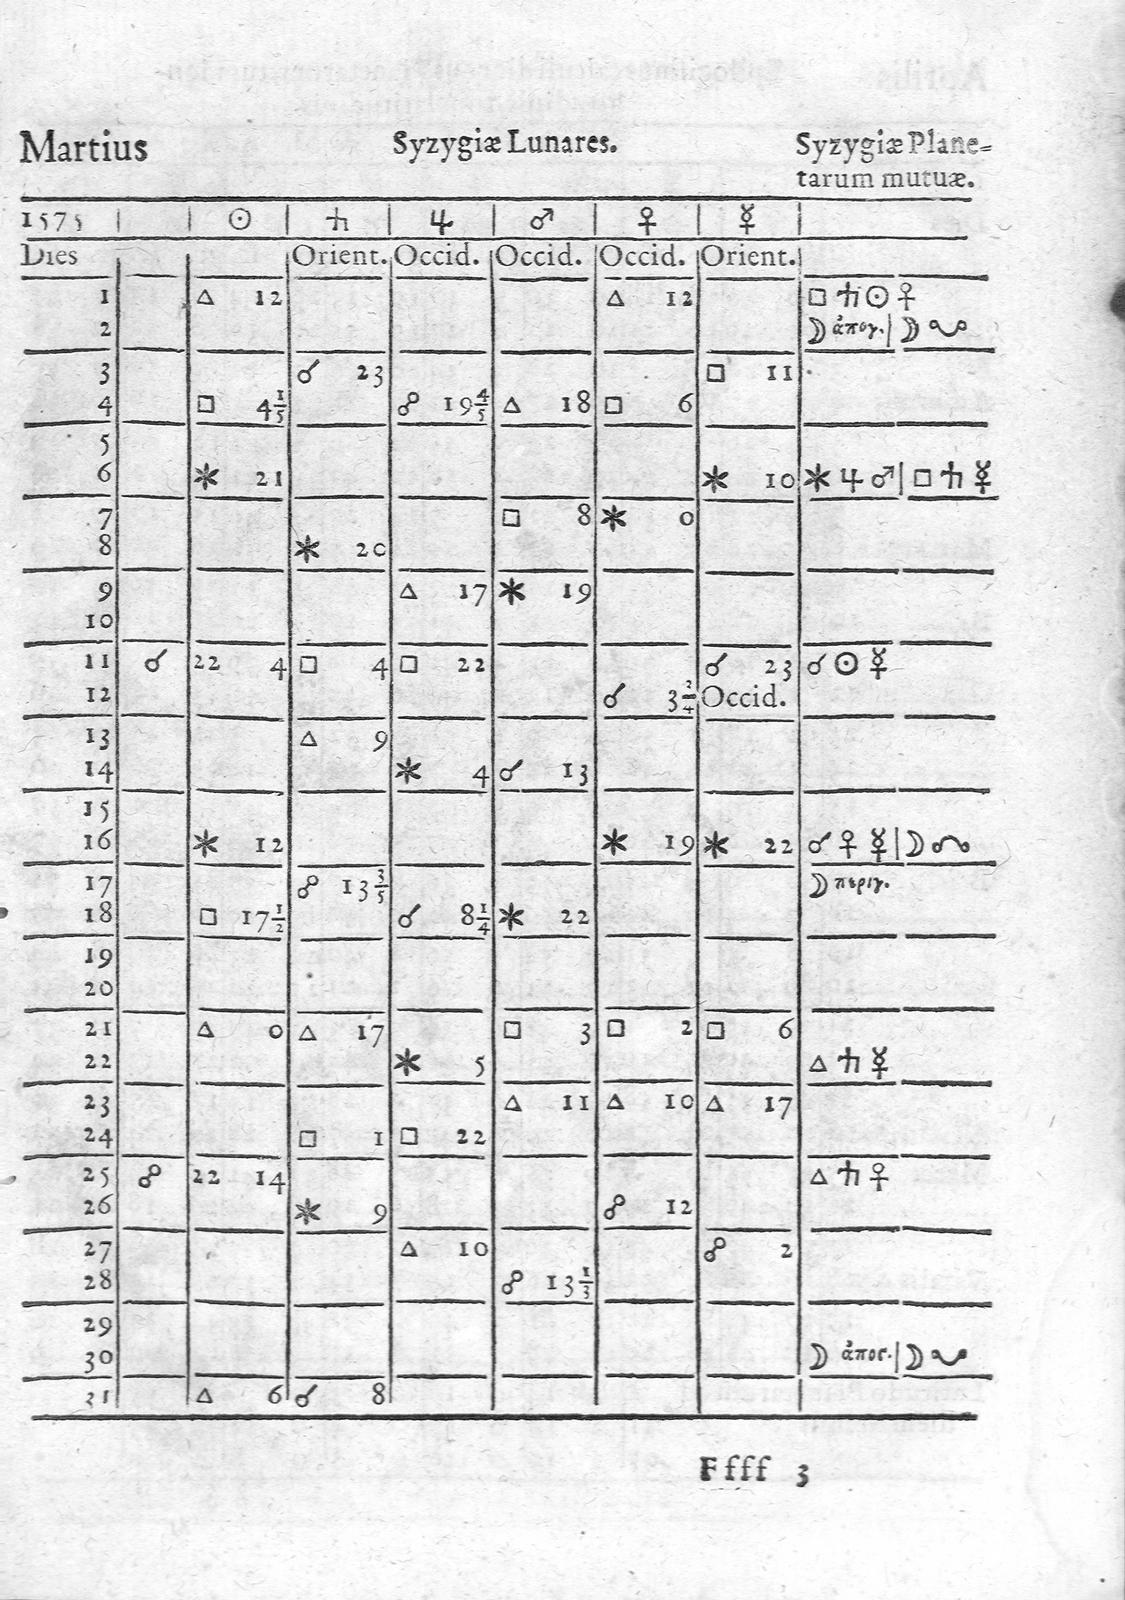 Martius Syzygiæ Lunares. Syzygiæ Plane=
tarum mutuæ.
1575 ☉ ♄ ♃ ♂ ♀ ☿
Dies Orient. Occid. Occid. Occid. Orient.
1 △ 12 △ 12 □ ♄ ☉ ♀
2 ☽ ἀπογ. | ☽ ☋
3 ☌ 23 □ 11
4 □ 4 1/5 ☍ 19 4/5 △ 18 □ 6
5
6 ✶ 21 ✶ 10 ✶ ♃ ♂ | □ ♄ ☿
7 □ 8 ✶ 0
8 ✶ 20
9 △ 17 ✶ 19
10
11 ☌ 22 4 □ 4 □ 22 ☌ 23 ☌ ☉ ☿
12 ☌ 3 2/4 Occid.
13 △ 9
14 ✶ 4 ☌ 13
15
16 ✶ 12 ✶ 19 ✶ 22 ☌ ♀ ☿ | ☽ ☊
17 ☍ 13 3/5 ☽ περιγ.
18 □ 17 1/2 ☌ 8 1/4 ✶ 22
19
20
21 △ 0 △ 17 □ 3 □ 2 □ 6
22 ✶ 5 △ ♄ ☿
23 △ 11 △ 10 △ 17
24 □ 1 □ 22
25 ☍ 22 14 △ ♄ ♀
26 ✶ 9 ☍ 12
27 △ 10 ☍ 2
28 ☍ 13 1/3
29
30 ☽ ἀπογ. | ☽ ☋
31 △ 6 ☌ 8
Ffff 3